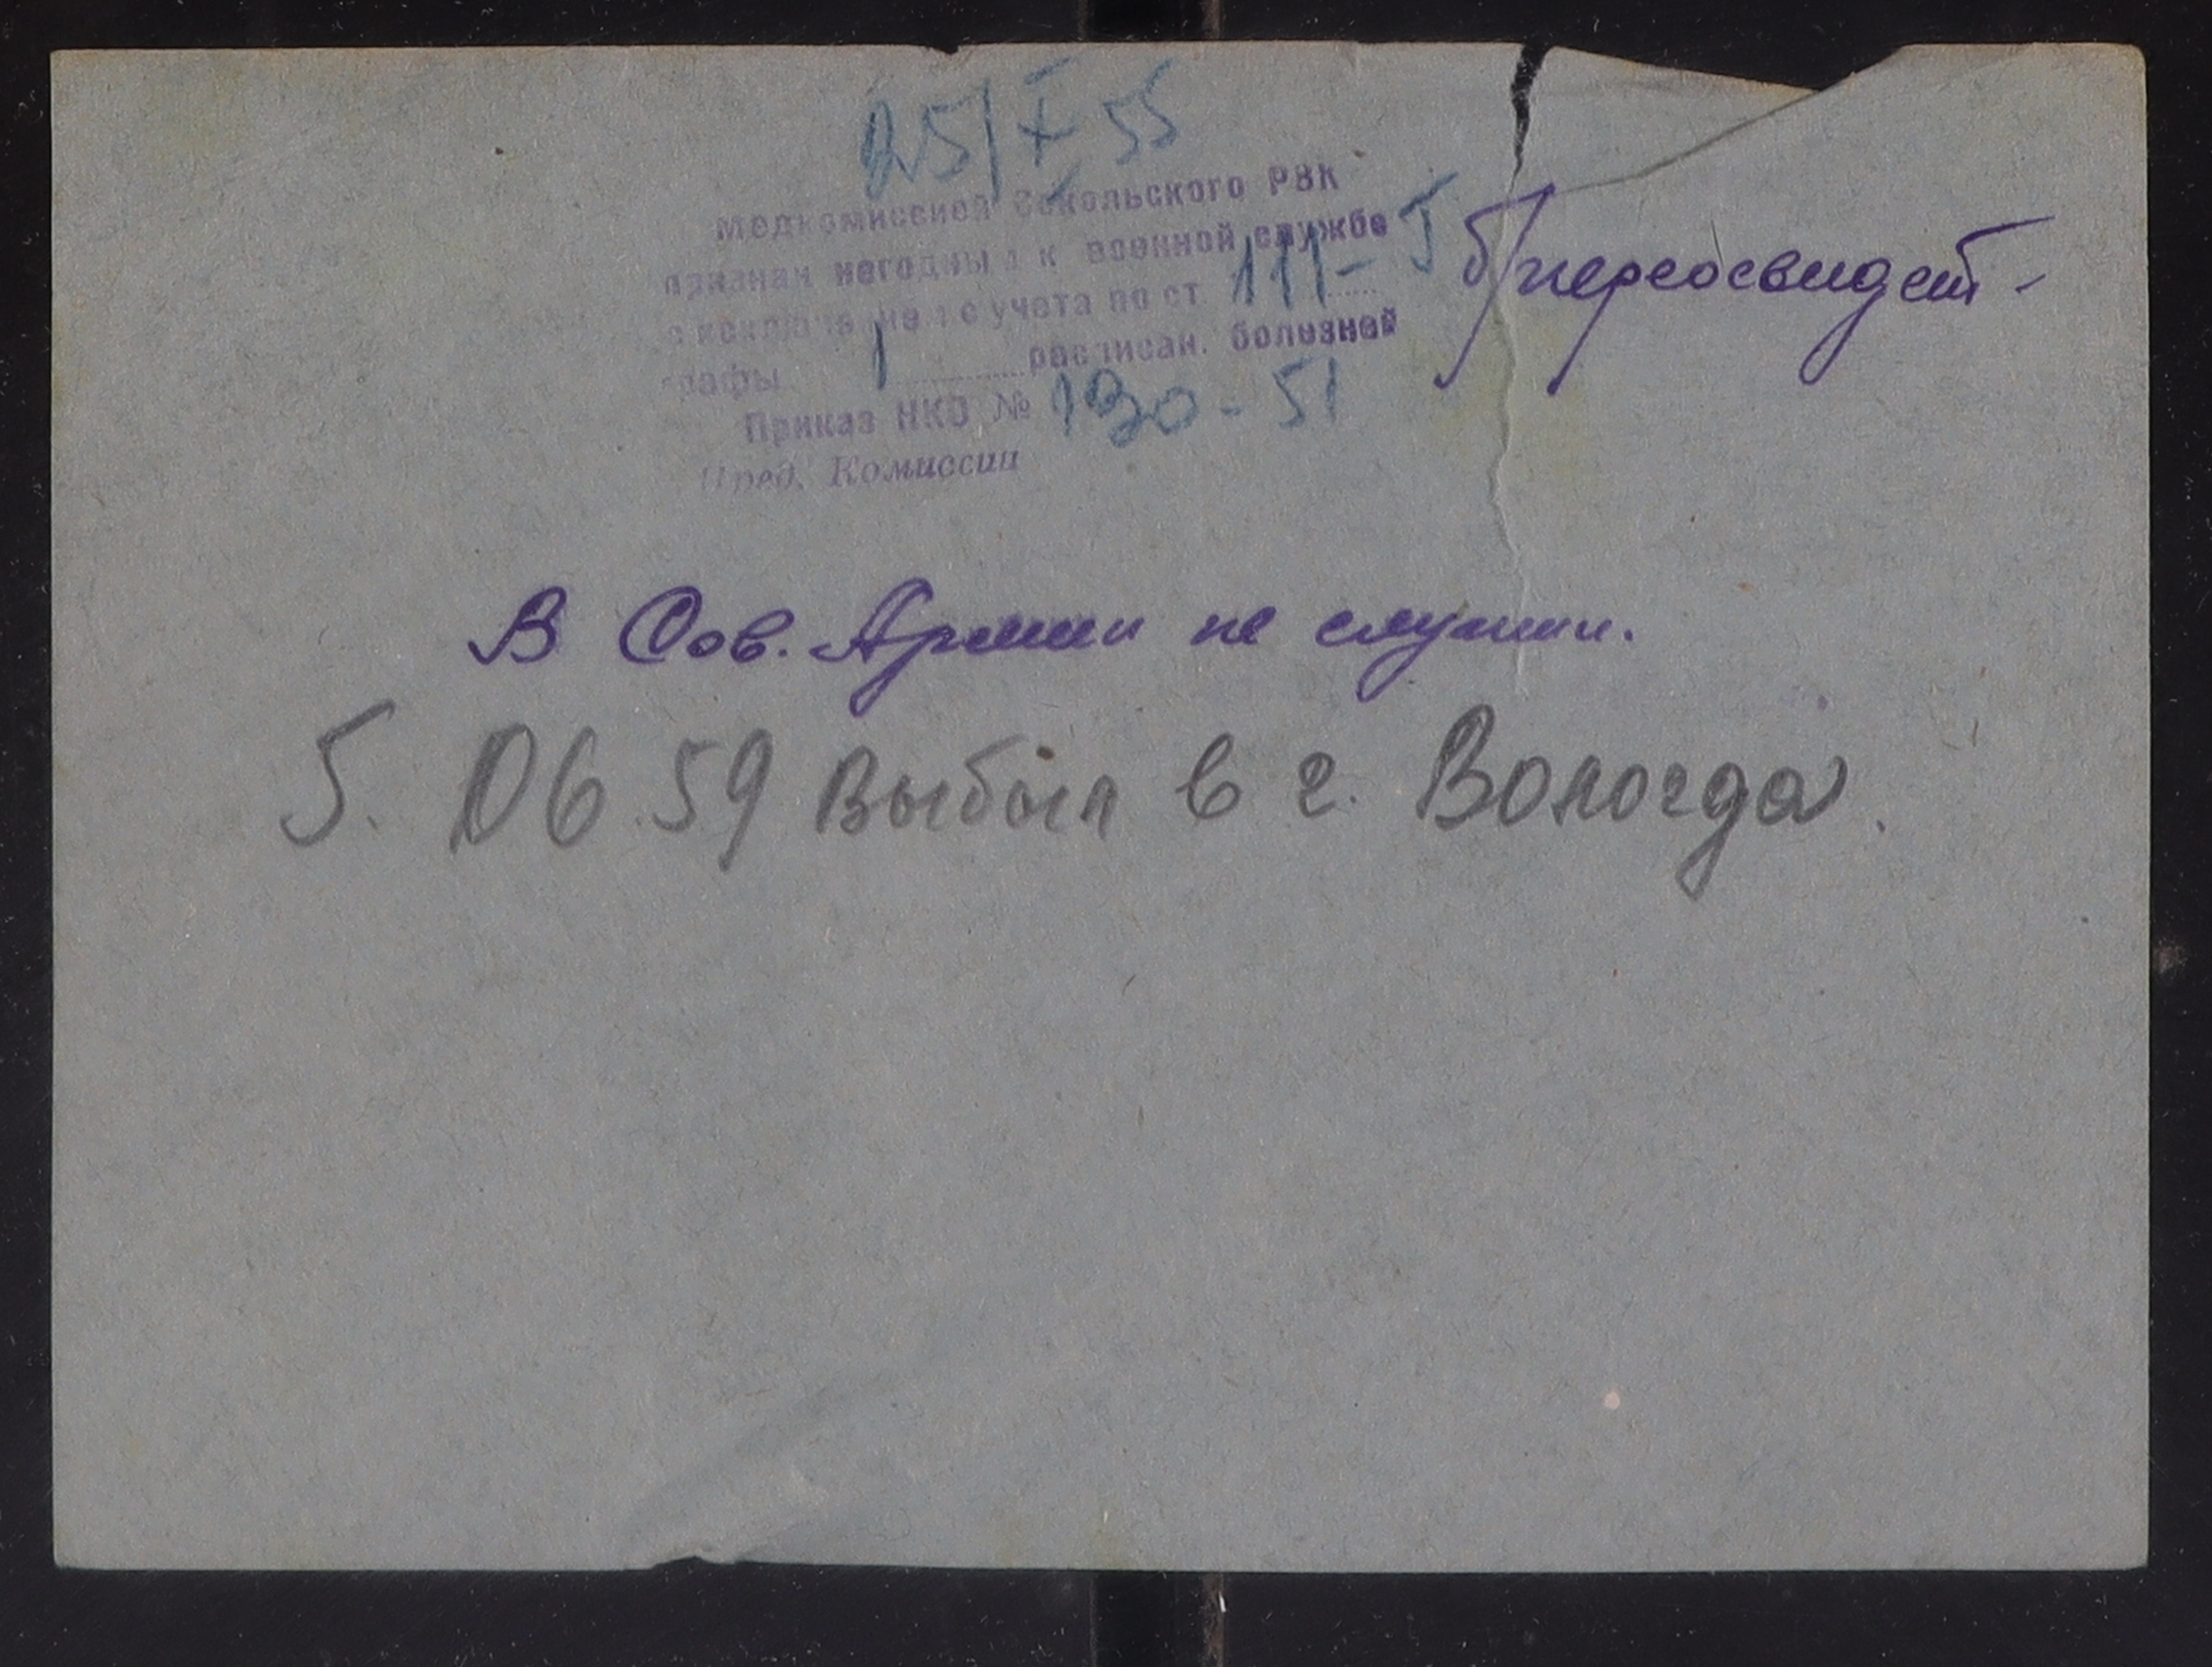 25/X 55
Медкомиссией Сокольского РВК
признан негодным к военной службе
с исключением с учета по ст. 111-I б/переосвидет-
графы 1 расписан. болезней
Приказ НКО № 130-51
Пред. Комиссии
В Сов. Армии не служил.
5. 06 59 Выбыл в г. Вологда.